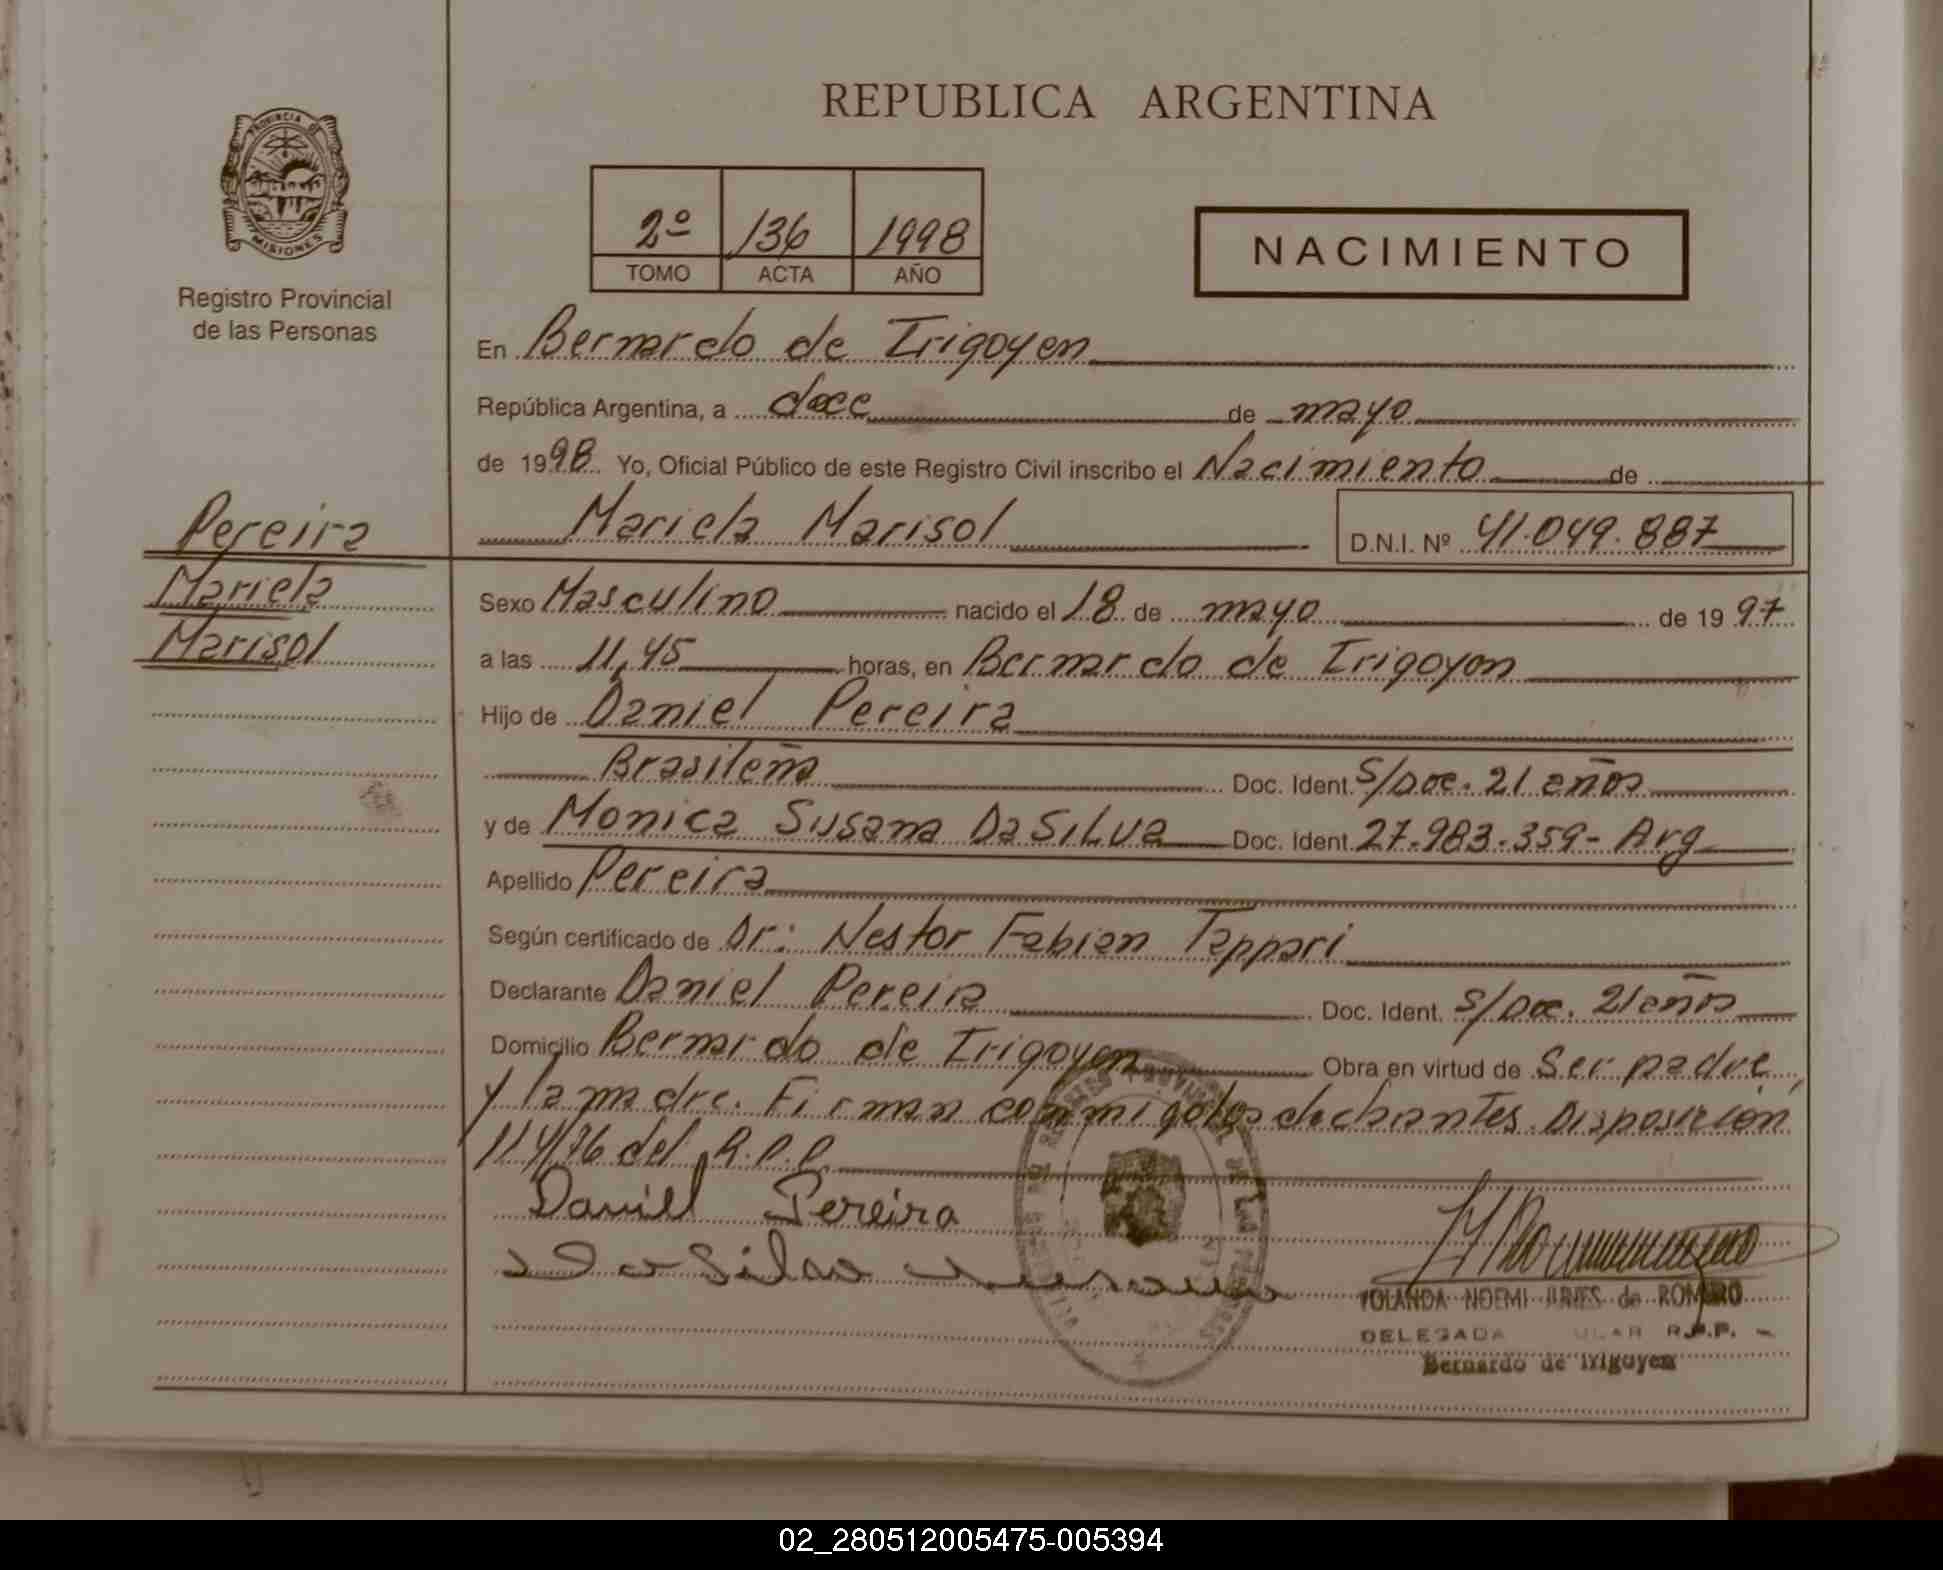 REPUBLICA ARGENTINA
PROVINCIA DE
MISIONES
Registro Provincial
de las Personas
2º 136 1998
TOMO ACTA AÑO
NACIMIENTO
En Bernardo de Irigoyen
República Argentina, a doce de mayo
de 1998 Yo, Oficial Público de este Registro Civil inscribo el Nacimiento de
Mariela Marisol D.N.I. Nº 41.049.887
Pereira
Mariela
Marisol
Sexo Masculino nacido el 18 de mayo de 1997
a las 11,45 horas, en Bernardo de Irigoyen
Hijo de Daniel Pereira
Brasileña Doc. Ident. S/Doc. 21 años
y de Monica Susana DaSilva Doc. Ident. 27.983.359- Arg
Apellido Pereira
Según certificado de Dr: Nestor Fabian Tappari
Declarante Daniel Pereira Doc. Ident. S/Doc. 21 años
Domicilio Bernardo de Irigoyen Obra en virtud de Ser padre
y la madre. Firman conmigo los declarantes. Disposición
114/96 del R.P.P
Daniel Pereira
Da Silva
YOLANDA NOEMI de ROMERO
DELEGADA R.P.P.
Bernardo de Irigoyen
02_280512005475-005394